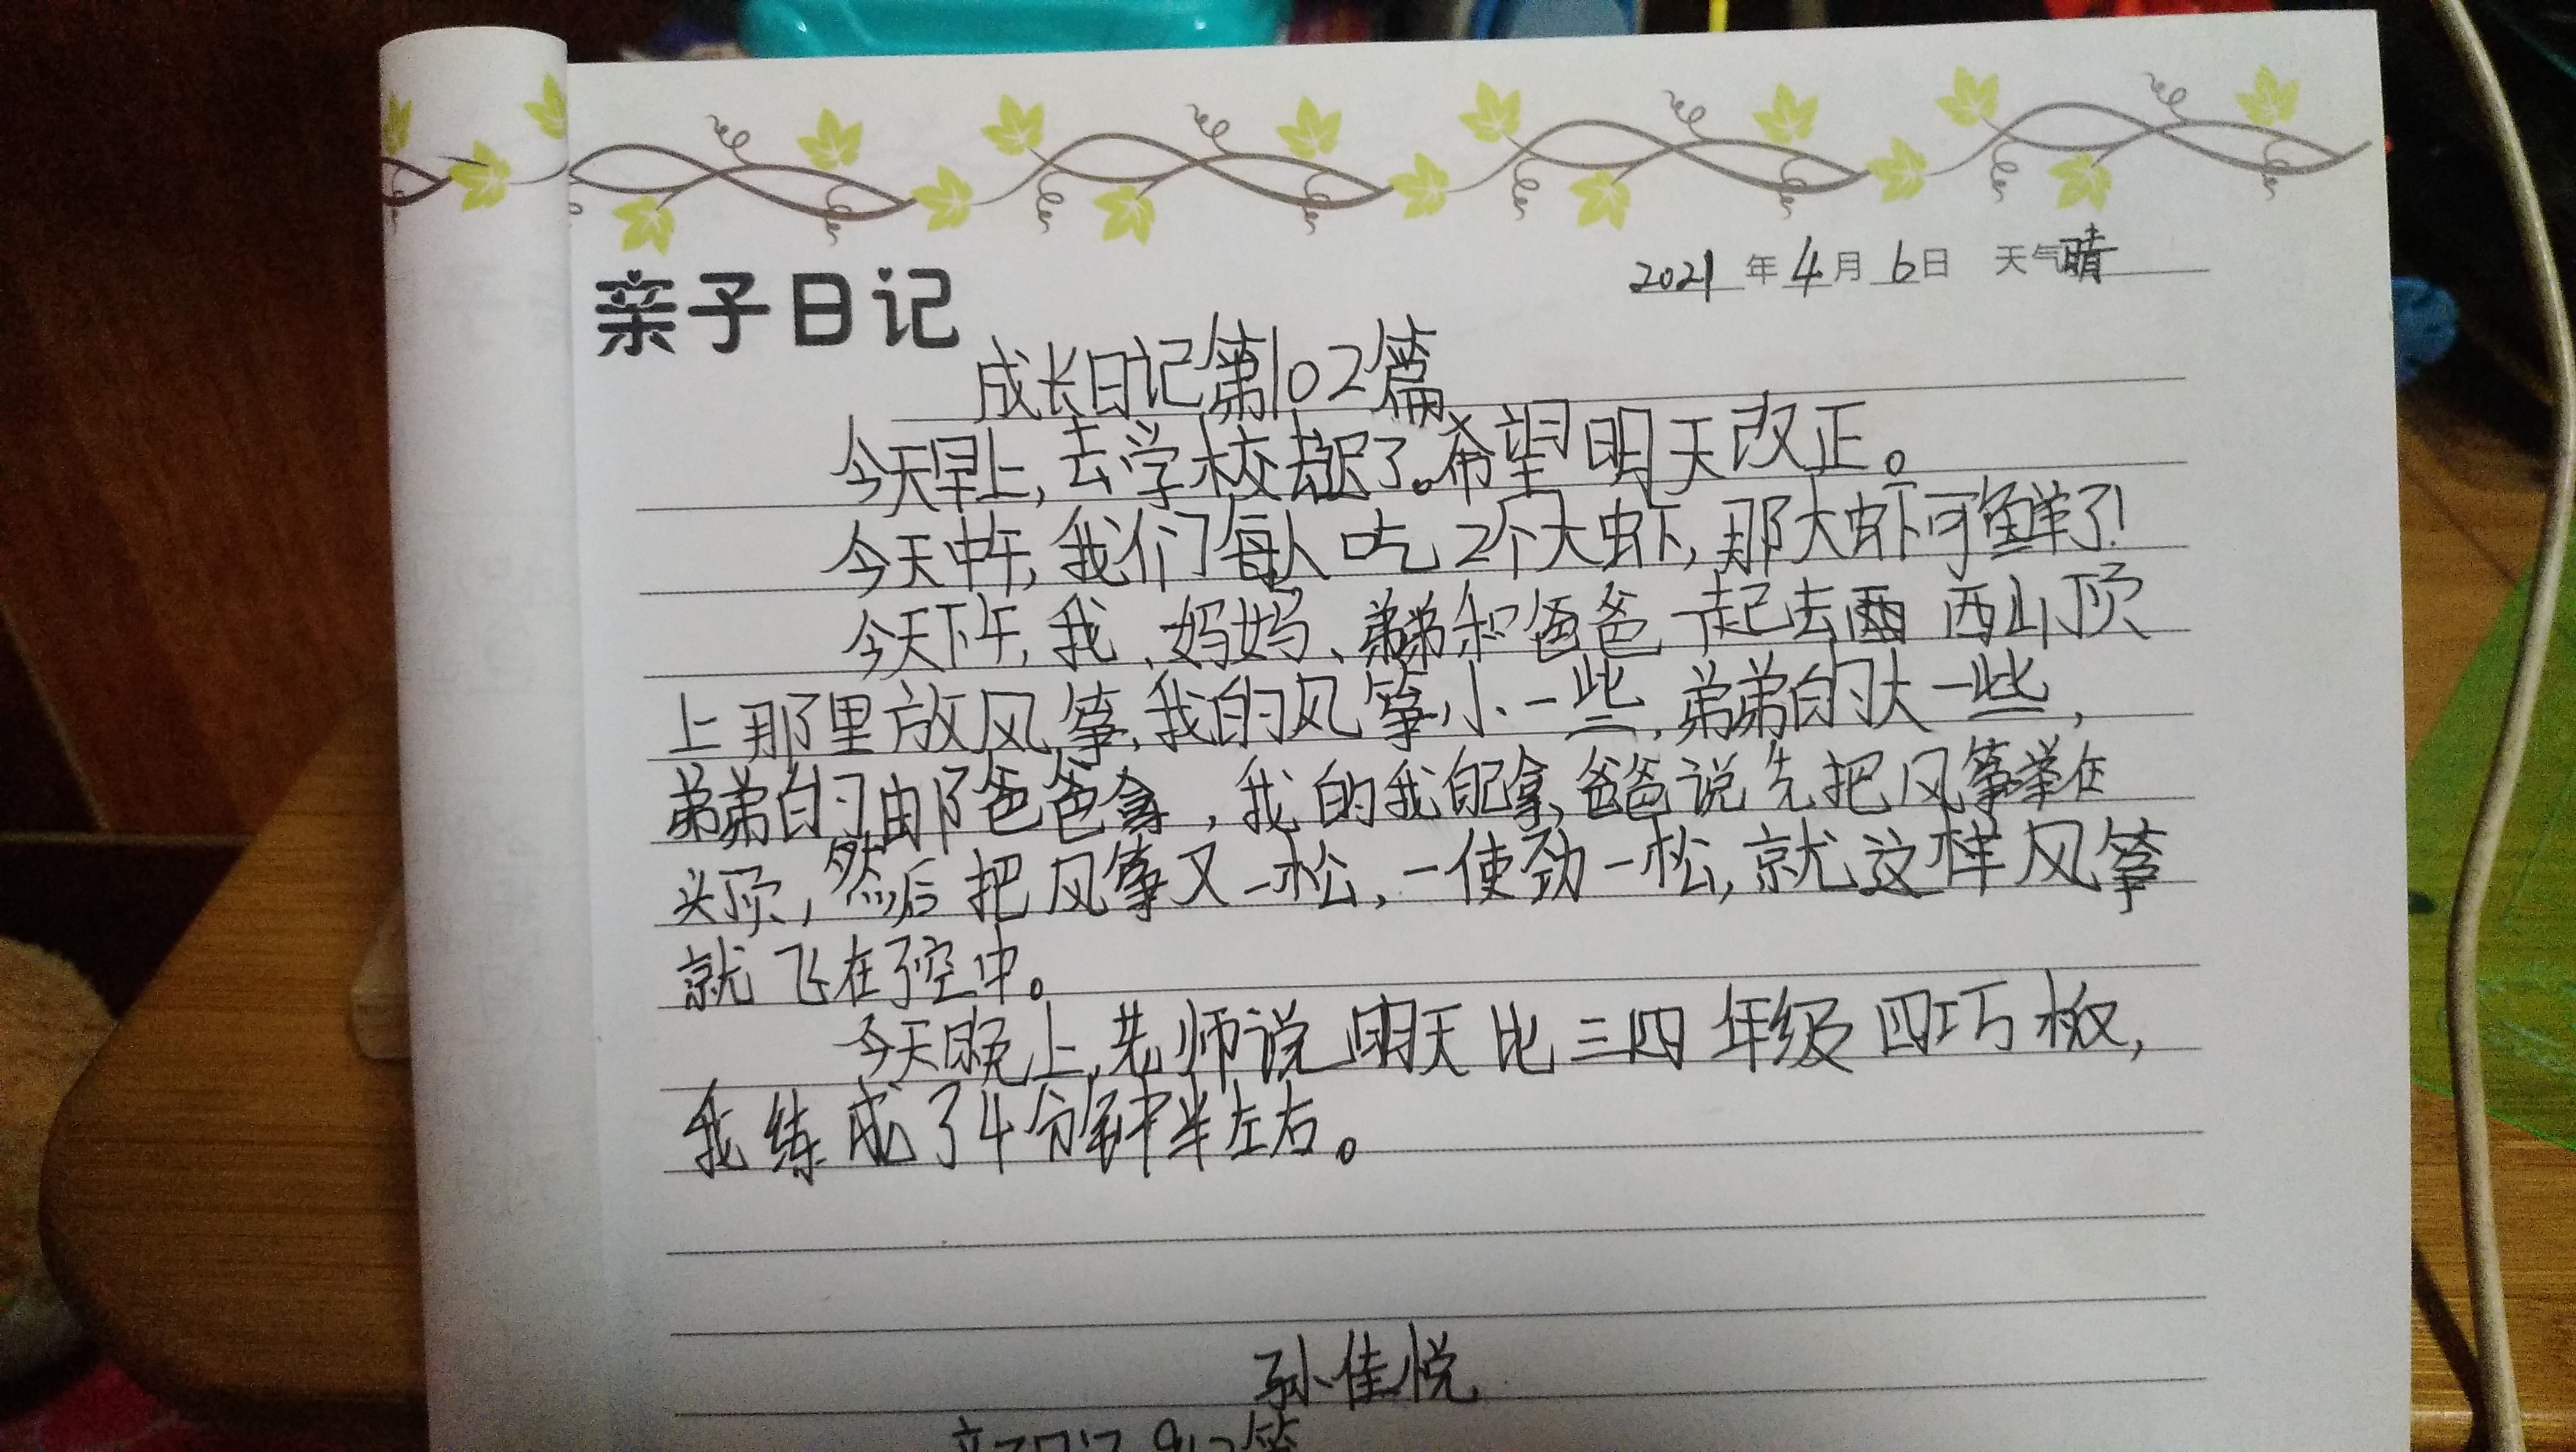 2021年4月6日 天气晴
亲子日记
成长日记第102篇
今天早上,去学校去迟了。希望明天改正。
今天中午,我们每人吃2个大虾,那大虾可鲜了!
今天下午,我、妈妈、弟弟和爸爸一起去西山顶
上那里放风筝,我的风筝小一些,弟弟的大一些,
弟弟的由爸爸拿,我的我自己拿,爸爸说先把风筝举在
头顶,然后把风筝又一松,一使劲一松,就这样风筝
就飞在了空中。
今天晚上,老师说明天比三四年级四巧板,
我练成了4分钟半左右。
孙佳悦